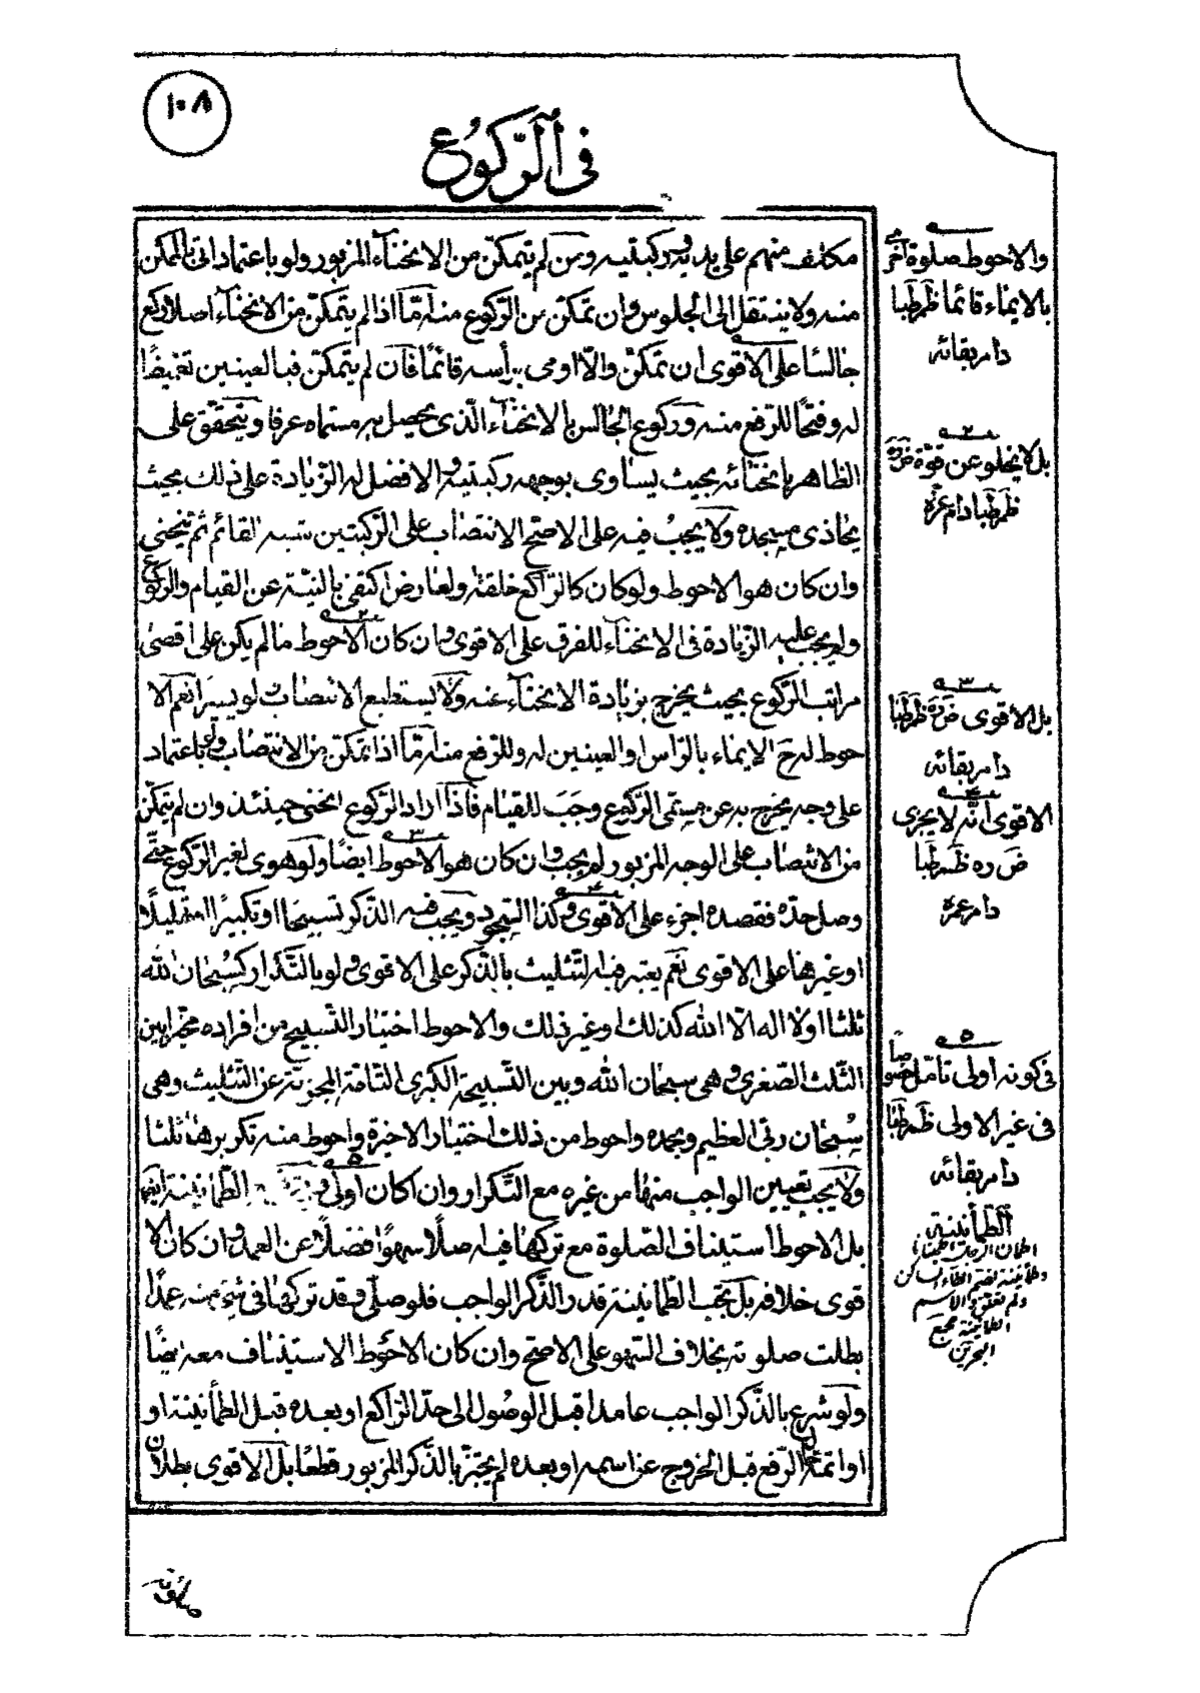 ١٠٨
فى الرّكوع
مكلّف منهم على يديه وركبتيه ومن لم يتمكّن من الانحناء المزبور ولو باعتماد اتى بالممكن
منه ولا ينتقل الى الجلوس وان تمكّن من الرّكوع منه امّا اذا لم يتمكّن من الانحناء اصلا ركع
جالسًا على الاقوى ان تمكّن والّا اومى برأسه قائمًا فان لم يتمكّن فبالعينين تغميضًا
له وفتحًا للرّفع منه وركوع الجالس بالانحناء الّذى يحصل به مسمّاه عرفا ويتحقّق على
الظاهر بانحنائه بحيث يساوى بوجهه ركبتيه والافضل له الزّيادة على ذلك بحيث
يحاذى مسجده ولا يجب فيه على الاصحّ الانتصاب على الرّكبتين شبه القائم ثم ينحنى
وان كان هو الاحوط ولو كان كالرّاكع خلقة ولعارض اكتفى بالنيّة عن القيام والركوع
ولم يجب عليه الزّيادة فى الانحناء للفرق على الاقوى وان كان الاحوط ما لم يكن على اقصى
مراتب الرّكوع بحيث يخرج بزيادة الانحناء عنه ولا يستطيع الانتصاب لو يسيرا نعم الا
حوط له ح الايماء بالرّاس او العينين له وللرّفع منه امّا اذا تمكّن من الانتصاب ولو باعتماد
على وجه يخرج به عن مسمّى الرّكوع وجب للقيام فاذا اراد الرّكوع انحنى حينئذ وان لم يتمكّن
من الانتصاب على الوجه المزبور لم يجب وان كان هو الاحوط ايضًا ولو هوى لغير الرّكوع حتّى
وصل حدّه فقصده اجزء على الاقوى وكذا السّجود ويجب فيه الذّكر تسبيحًا او تكبيرًا او تهليلًا
او غيرها على الاقوى نعم يعتبر فيه التثليث بالذّكر على الاقوى ولو بالتّكرار كسبحان الله
ثلثا او لا اله الّا الله كذلك او غير ذلك والاحوط اختيار التّسبيح من افراده مخيّرا بين
الثّلث الصّغرى وهى سبحان الله وبين التّسبيحة الكبرى التّامّة المجزية عن التثليث وهى
سبحان ربّى العظيم وبحمده واحوط من ذلك اختيار الاخيرة واحوط منه تكريرها ثلثا
ولا يجب تعيين الواجب منها من غيره مع التّكرار وان كان اولى الطّمانينة ايضا
بل الاحوط استيناف الصّلوة مع تركها فيه اصلًا سهوًا فضلًا عن العمد وان كان الا
قوى خلافه بل تجب الطّمانينة قدر الذّكر الواجب فلو صلّى وقد تركها فى شىء منه عمدًا
بطلت صلوته بخلاف السّهو على الاصحّ وان كان الاحوط الاستيناف معه ايضًا
ولو شرع بالذّكر الواجب عامدا قبل الوصول الى حدّ الرّاكع او بعده قبل الطّمأنينة او
او اتمّه حال الرّفع قبل الخروج عن اسمه او بعده لم يجتز بالذّكر المزبور قطعًا بل الاقوى بطلان
صلوته
والاحوط صلوة اخرى
بالايماء قائما ظم طبا
دام بقائه
٢
بل لا يخلو عن قوّة
ظم طبا دام عزّه
٣
بل الاقوى ض ره ظم طبا
دام بقائه
٤
الاقوى انّه لا يجزى
ض ره ظم طبا
دام عزه
٥
فى كونه اولى تامّل خصوصا
فى غير الاولى ظم طبا
دام بقائه
الطّمأنينة
اطمان الرجل اطمينانا
وطمأنينة بضم الطاء
ولم يقلق والاسم
الطمأنينة مجمع
البحرين